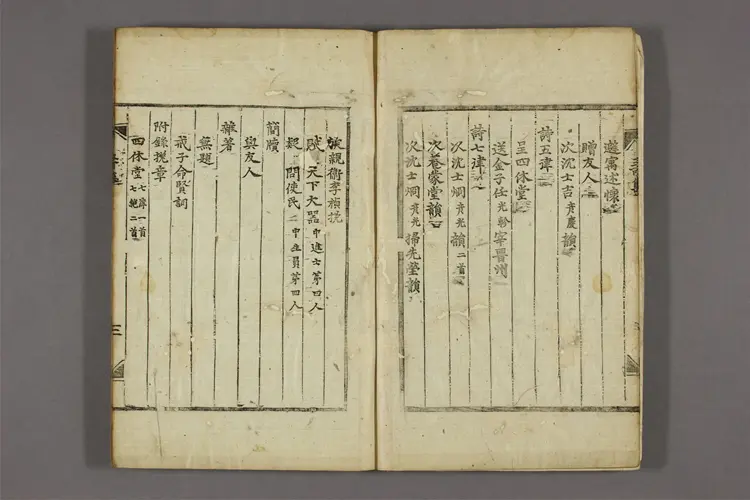 遊寓述懷
贈友人
次沈士吉貞慶韻
詩五律
呈四休堂
送金子任光粉宰晋州
詩七律
次沈士炯貞光韻二首
次養蒙堂韻
次沈士炯貞光掃先塋韻
挽親衛李
賦 天下大器中進士第四人
疑 問使民中生員第四人
簡牘
與友人
雜著
無題
戒子命賢詞
附錄挽章
四休堂七律一首七絶二首
三